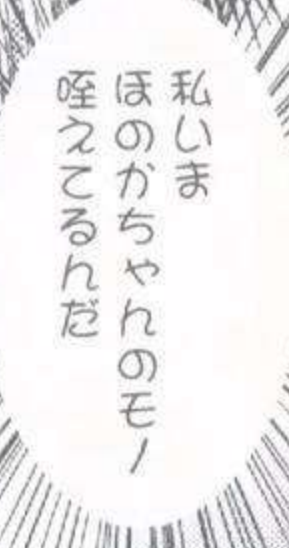 私いま
ほのかちゃんのモノ
咥えてるんだ